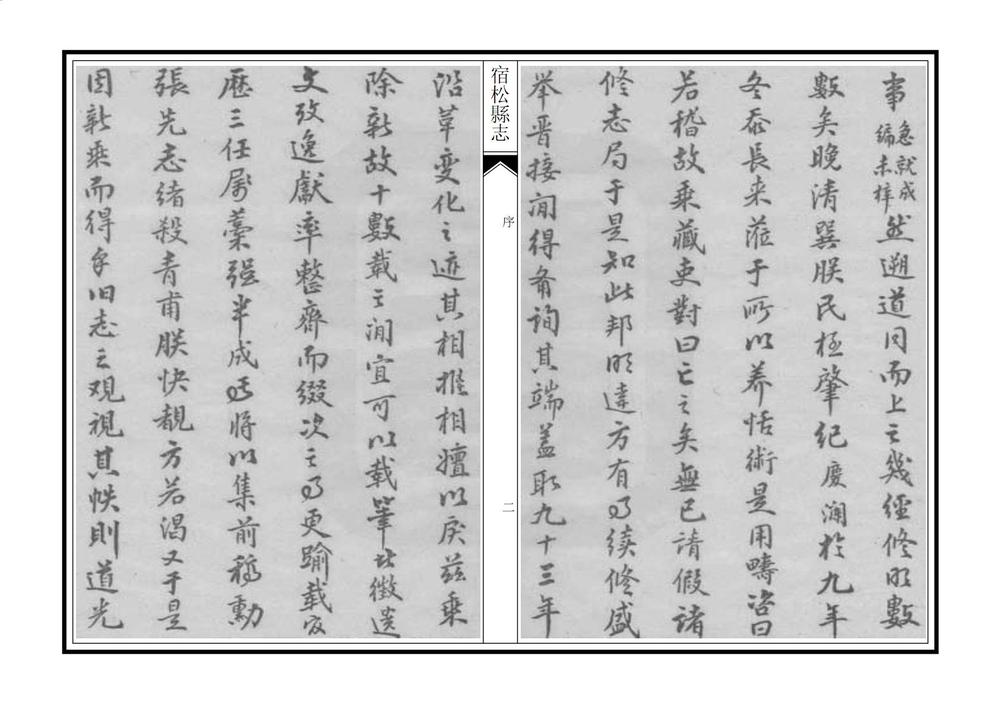 事急就成編未梓然遡道同而上之幾經修明數
數矣晚清巽朕民極肇紀慶瀾於九年
冬忝長来蒞于所以养恬術是用疇咨曰
若稽故乘藏吏對曰亡之矣無已請假諸
修志局于是知此邦明達方有事續修盛
举晋接间得备詢其端蓋取九十三年
宿松縣志
序
二
沿革變化之迹其相推相嬗以戾兹乘
除新故十數载之间宜可以载筆比徵遗
文攷逸獻率整齊而缀次之事更踰载官
歷三任属藁强半成将以集前稿勳
張先志緒殺青甫朕快覩方若渴又于是
因新乘而得旧志之观視其帙則道光